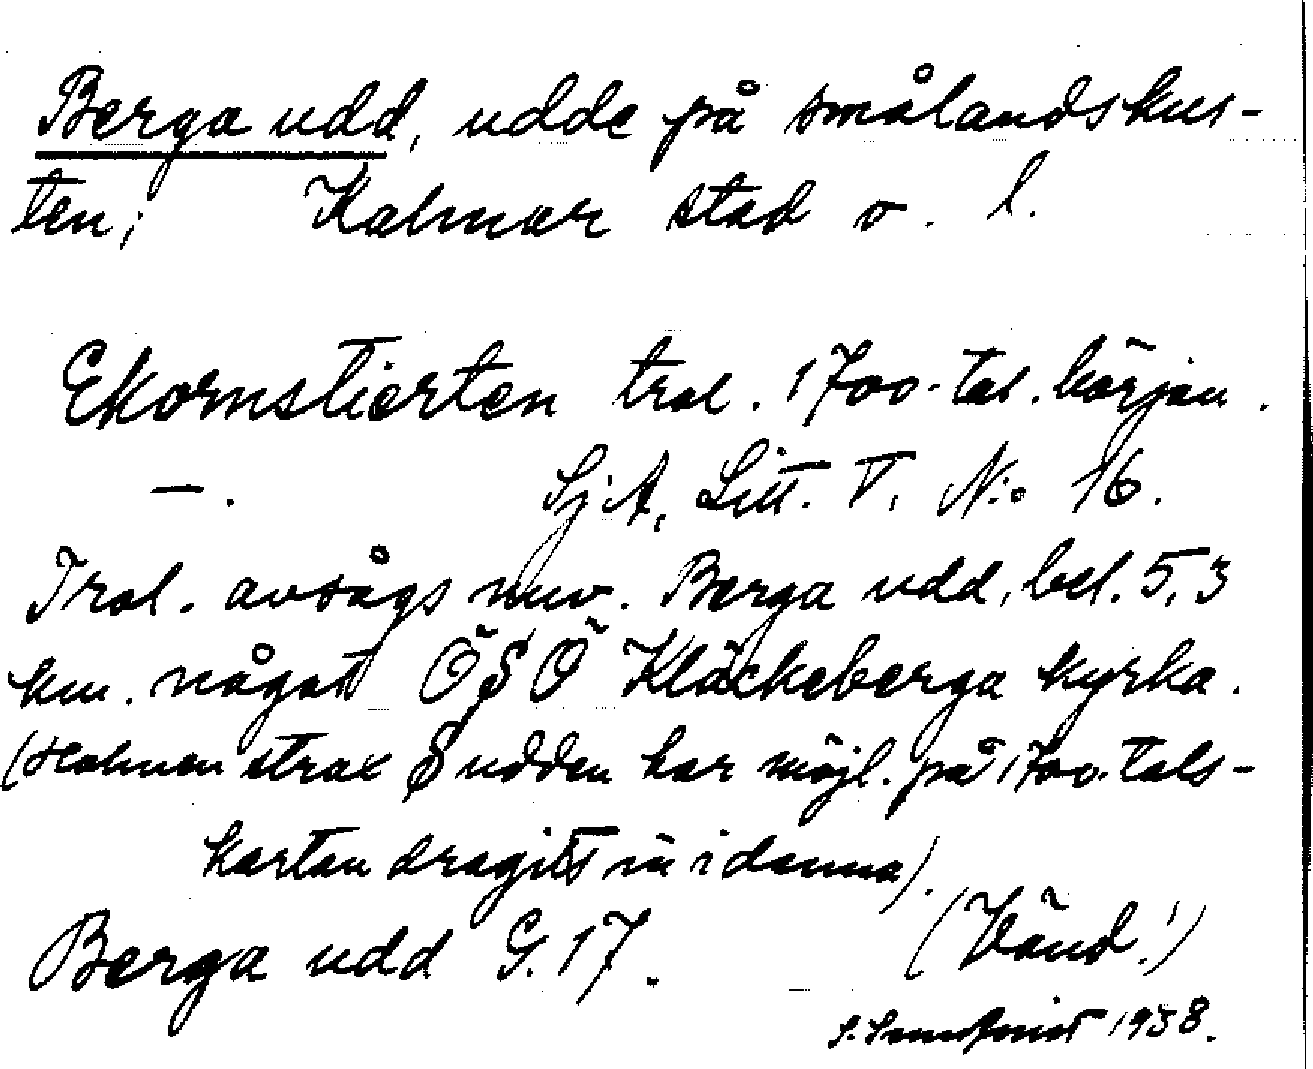 Berga udd, udde på smålandskus-
ten; Kalmar stad o. l.
Ekornstierten trol. 1700-tal. början.
—. SjA, Litt. T, N:o 16.
Trol. avsågs nuv. Berga udd, bel. 5,3
km. något ÖSÖ Kläckeberga kyrka.
(Holmen strax S udden har möjl. på 1700-tals-
kartan dragits in i denna).
Berga udd G. 17. (Vänd!)
1938.